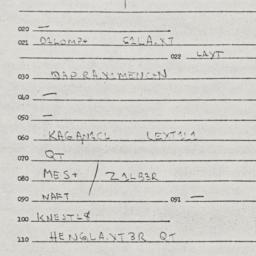 020 —
021 O1LOMP+ C1LA.XT
022 LAYT
030 DAP.RA.XOMENCON
040 —
050 —
060 KAGAN1CL LEXT1L1
070 QT
080 MES+ / Z1LB3R
090 NAFT 091 —
100 KNESTL$
110 HENGLA.XT3R QT